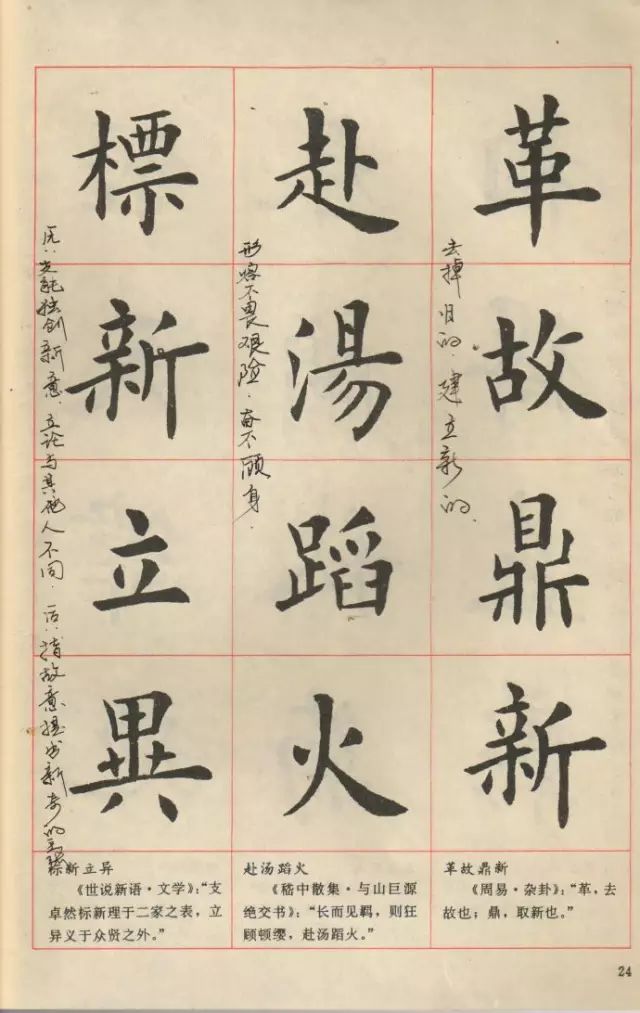 革
故
鼎
新
去掉旧的.建立新的.
革故鼎新
《周易·杂卦》:“革,去
故也;鼎,取新也。”
赴
湯
蹈
火
形容不畏艰险.奋不顾身.
赴汤蹈火
《嵇中散集·与山巨源
绝交书》:“长而见羁,则狂
顾顿缨,赴汤蹈火。”
標
新
立
異
立论与其他人不同.
标新立异
《世说新语·文学》:“支
卓然标新理于二家之表,立
异义于众贤之外。”
24